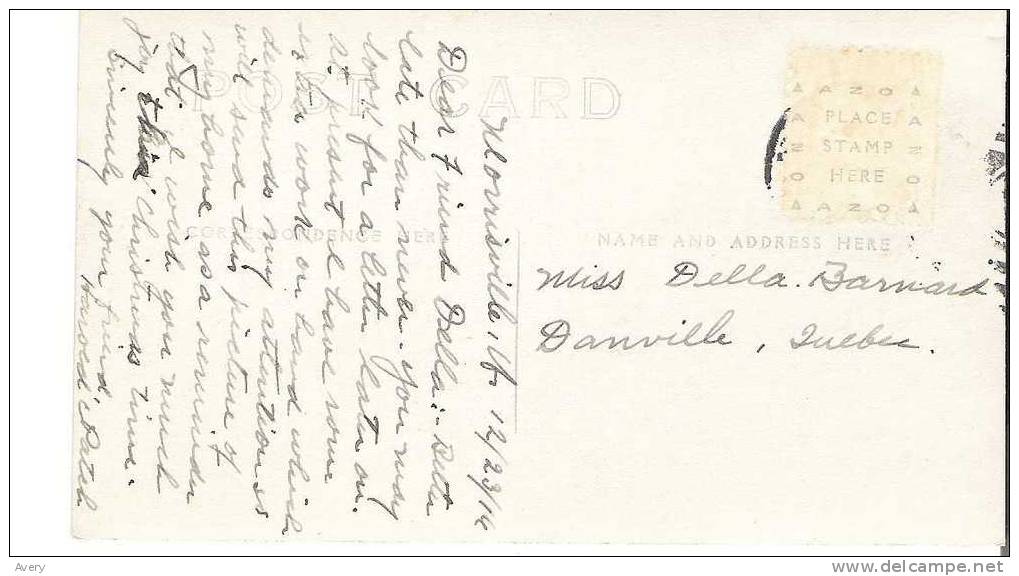 POST CARD
CORRESPONDENCE HERE
NAME AND ADDRESS HERE
AZO
PLACE
STAMP
HERE
AZO
AZO
AZO
Miss Della Barnard
Danville, Quebec.
Morrisville, Vt. 12/23/14
Dear Friend Della:- Better
late than never. You may
look for a letter later on.
At present I have some
extra work on hand which
demands my attention so
will send this picture of
my home as a reminder
that I wish you much
joy this Christmas time.
Sincerely your friend,
Harold Patch
Avery
www.delcampe.net